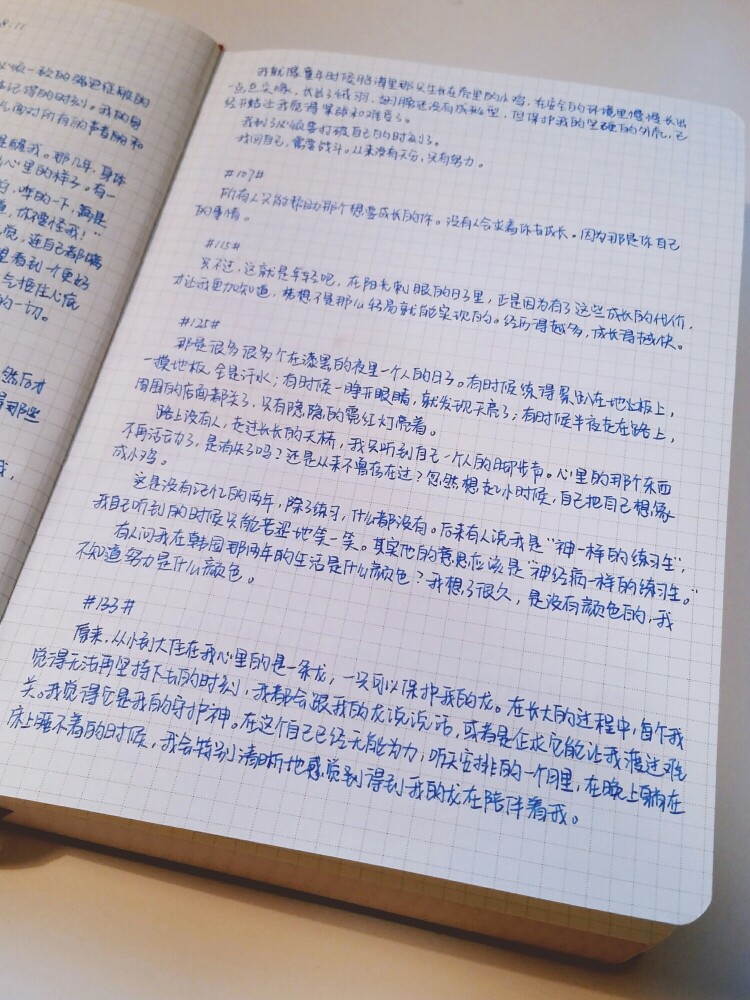 8.11
心惊一秒的
记得的时刻。我的自
面对所有的声音响和
醒我。那几年,身体
心里的样子。有一
的,哗的一下,
道,你要怪我!"
觉,连自己都瞒
望看到一个更好
的一切。
然后才
那些
我,
我就像童年时候 里那只生长在壳里的小鸡,在安全的环境里慢慢长出
一点点尖嘴,长出了绒羽,翅膀还没有成形,但保护我的坚硬的外壳,已
经开始让我觉得束缚和难受了。
我到了必须要打破自己的时刻了。
我问自己,需要战斗。从来没有天分,只有努力。
#107#
所有人只能帮助那个想要成长的你。没有人会求着你去成长。因为那是你自己
的事情。
#115#
只不过,这就是年轻吧,在阳光刺眼的日子里,正是因为有了这些成长的代价,
才让我更加知道,梦想不是那么轻易就能实现的。经历得越多,成长得越快。
#125#
那是很多很多个在漆黑的夜里一个人的日子。有时候练得累趴在地板上,
一摸地板,全是汗水;有时候一睁开眼睛,就发现天亮了;有时候半夜走在路上,
周围的店面都关了,只有隐隐的霓虹灯亮着。
路上没有人,在过长长的天桥,我只听到自己一个人的脚步声。心里的那个东西
不再活动了,是消失了吗?还是从来不曾存在过?忽然想起小时候,自己把自己想象
成小鸡。
这是没有记忆的两年,除了练习,什么都没有。后来有人说我是"神一样的练习生",
我自己听到的时候只能苦涩地笑一笑。其实他的意思应该是"神经病一样的练习生。"
有人问我在韩国那两年的生活是什么颜色?我想了很久,是没有颜色的,我
不知道努力是什么颜色。
#133#
原来,从小到大住在我心里的是一条龙,一只可以保护我的龙。在长大的过程中,每个我
觉得无法再坚持下去的时刻,我都会跟我的龙说说话,或者是企求它能让我渡过难
关。我觉得它是我的守护神。在这个自己已经无能为力,听天安排的一个月里,在晚上躺在
床上睡不着的时候,我会特别清晰地感觉到得到我的龙在陪伴着我。